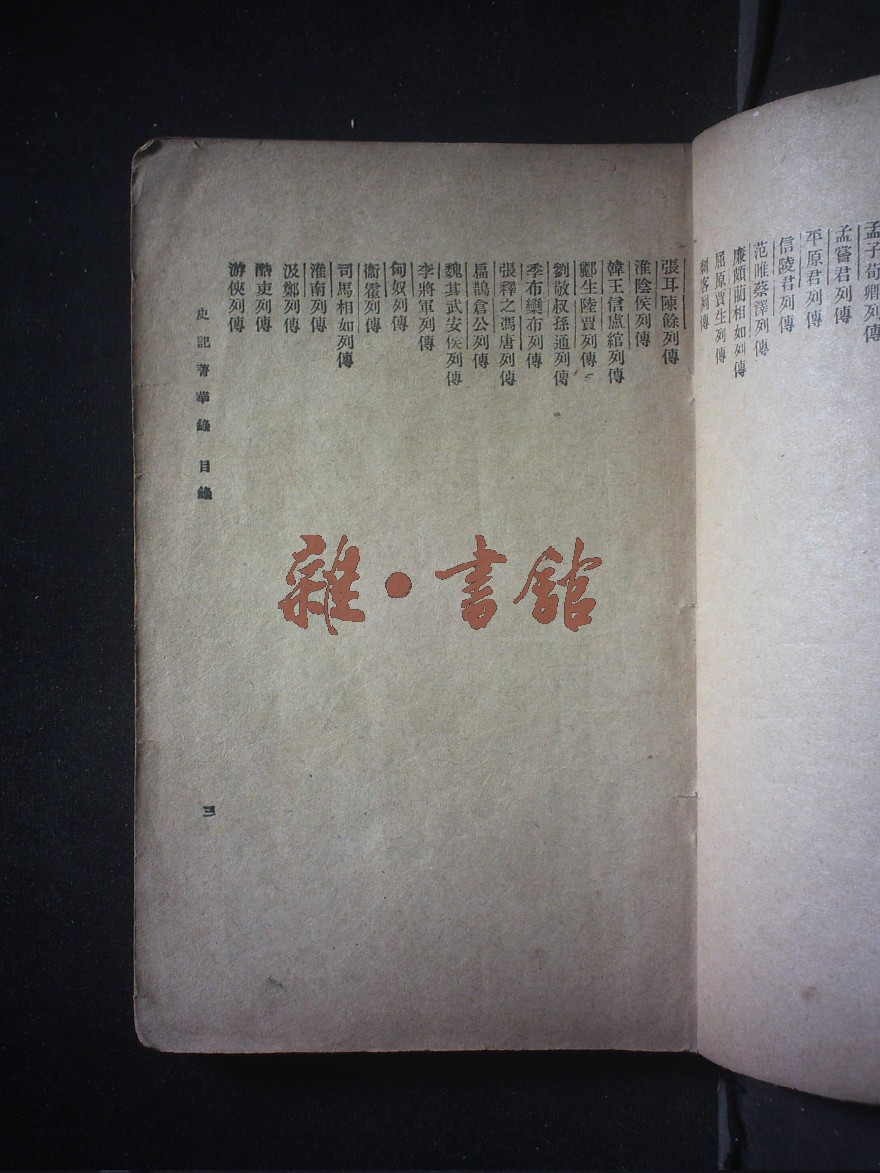 孟子荀卿列傳
孟嘗君列傳
平原君列傳
信陵君列傳
范雎蔡澤列傳
廉頗藺相如列傳
屈原賈生列傳
刺客列傳
張耳陳餘列傳
淮陰侯列傳
韓王信盧綰列傳
酈生陸賈列傳
劉敬叔孫通列傳
季布欒布列傳
張釋之馮唐列傳
扁鵲倉公列傳
魏其武安侯列傳
李將軍列傳
匈奴列傳
衞霍列傳
司馬相如列傳
淮南列傳
汲鄭列傳
酷吏列傳
游俠列傳
史記菁華錄 目錄
三
雜·書館